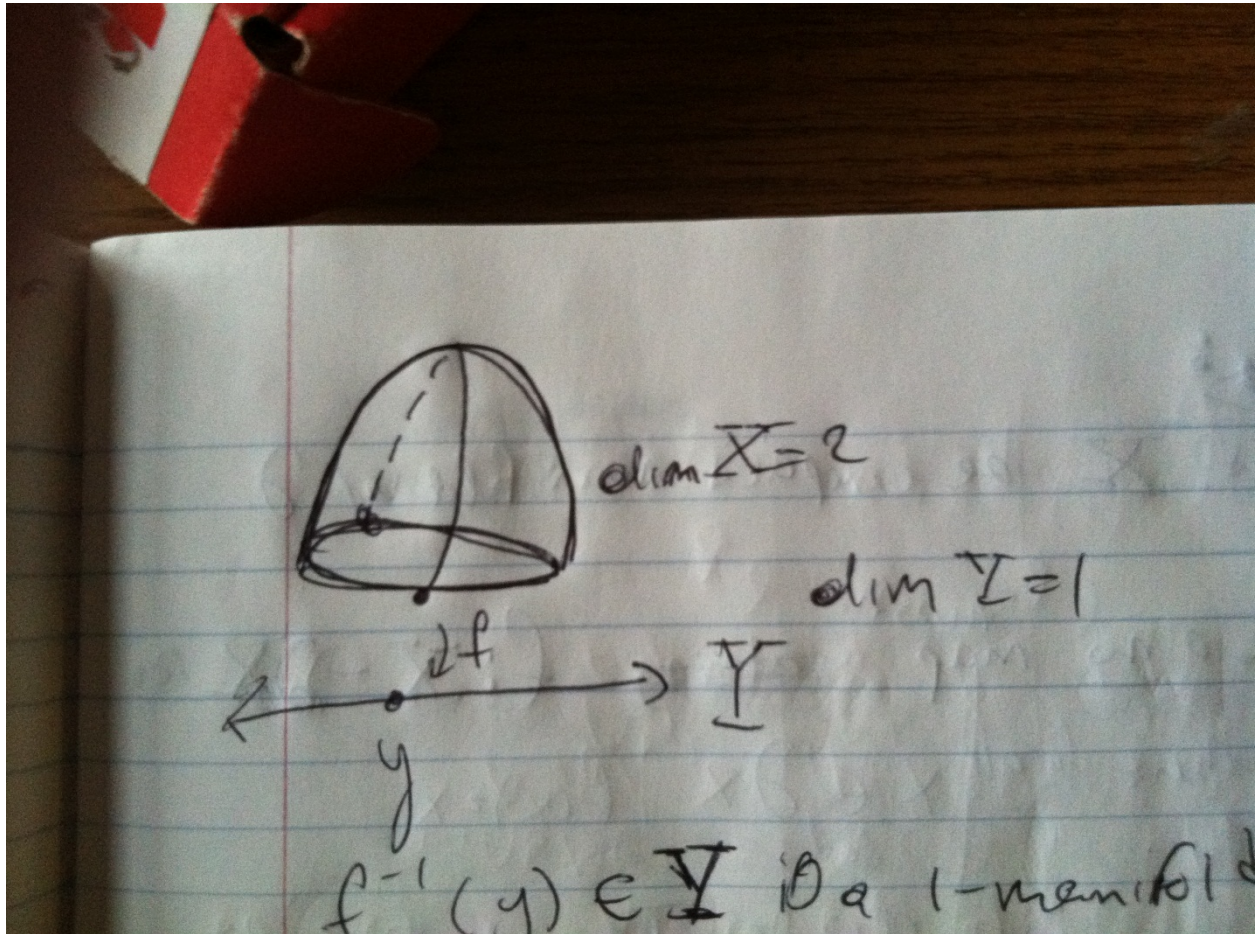 dim X = 2
dim Y = 1
↓ f
Y
y
f⁻¹(y) ∈ Y is a 1-manifold